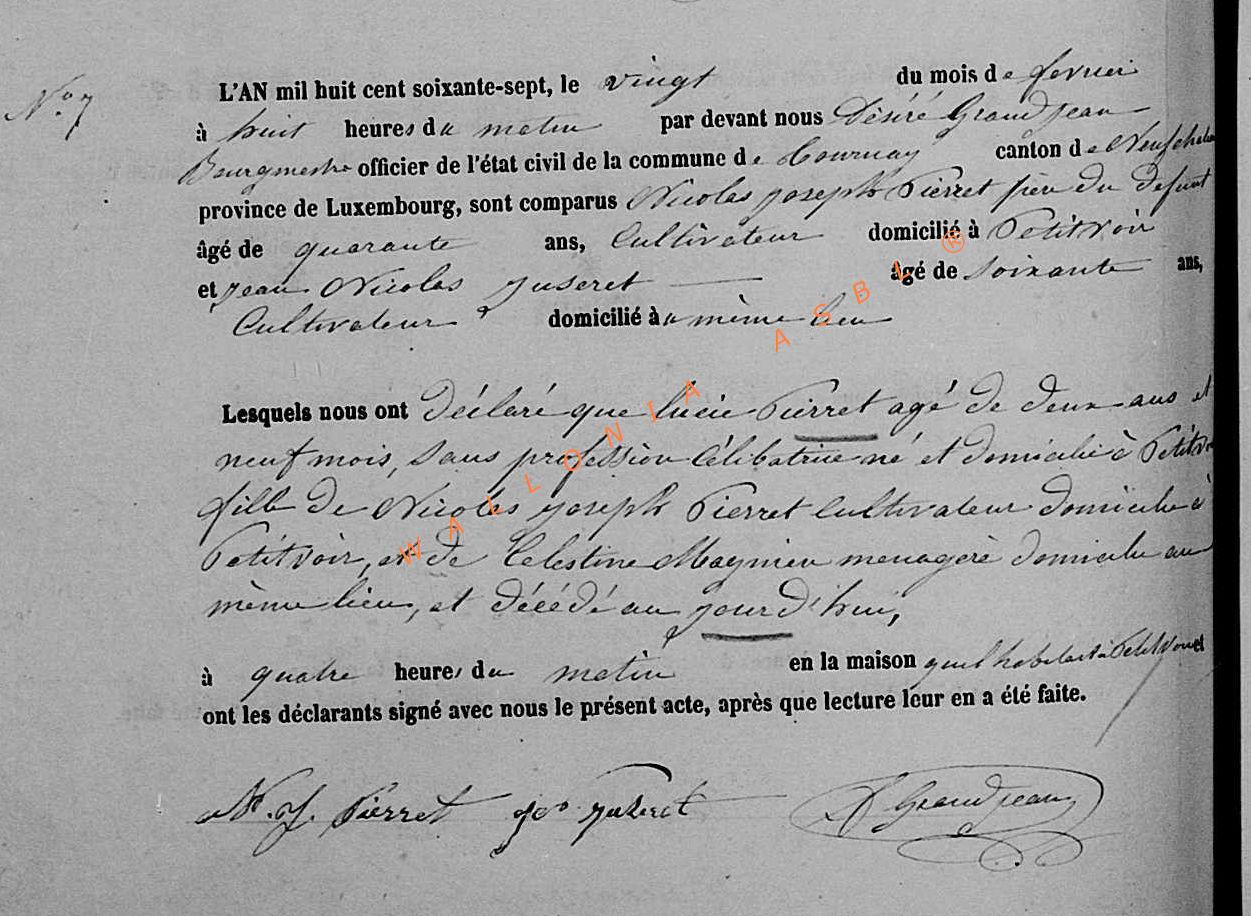 N° 7
L'AN mil huit cent soixante-sept, le vingt du mois de fevrier
à huit heures du matin par devant nous Désiré Grandjean
Bourgmestre officier de l'état civil de la commune de Tournay canton de Neufchateau
province de Luxembourg, sont comparus Nicolas joseph Pierret père du defunt
âgé de quarante ans, Cultivateur domicilié à Petitvoir
et jean Nicolas juseret âgé de soixante ans,
Cultivateur domicilié au même lieu
Lesquels nous ont déclaré que lucie Pierret agé de deux ans et
neuf mois, Sans profession Célibatrice né et domicilié à Petitvoir
fille de Nicolas joseph Pierret Cultivateur domicilié à
Petitvoir, et de Celestine Magnien menagère domicilié au
même lieu, et décédé au jourd'hui,
à quatre heures du matin en la maison qu'il habitait à Petitvoir et
ont les déclarants signé avec nous le présent acte, après que lecture leur en a été faite.
N. J. Pierret juseret D Grandjean
WALLONIA ASBL ®